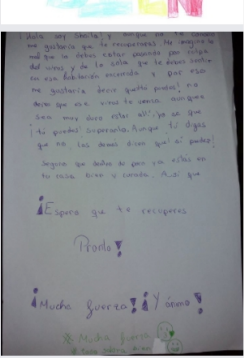 ¡Hola soy Sheila! y aunque no te conozco
me gustaría que te recuperases. Me imagino lo
mal que lo debes estar pasando por culpa
del virus y de lo sola que te debes sentir
en esa habitación encerrada y por eso
me gustaría decir que tú puedes! no
dejes que ese virus te venza aunque
sea muy duro estar allí ya se que
¡tú puedes! superarlo. Aunque tú digas
que no los demás dicen que ¡si puedes!
Seguro que dentro de poco ya estás en
tu casa bien y curada. Así que
¡Espero que te recuperes
Pronto!
¡Mucha fuerza! ¡Y ánimo!
# Mucha fuerza